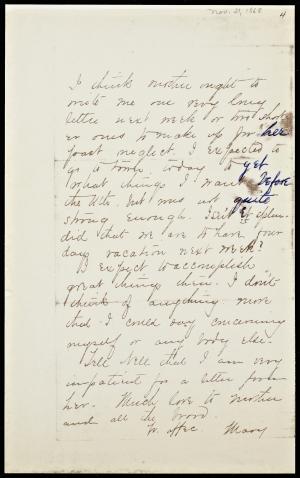 Nov. 21, 1868
4
I think mother ought to
write me one very long
letter next week or two short
er ones to make up for her
past neglect. I expected to
go to town today to get
what things I want before
the 26th, but was not quite
strong enough. Isn't it splen-
did that we are to have four
day vacation next week?
I expect to accomplish
great things then. I don't
think of anything more
that I could say concerning
myself or any body else.
Tell Nell that I am very
impatient for a letter from
her. Much love to mother
and all the brood.
Yr. affec. Mary